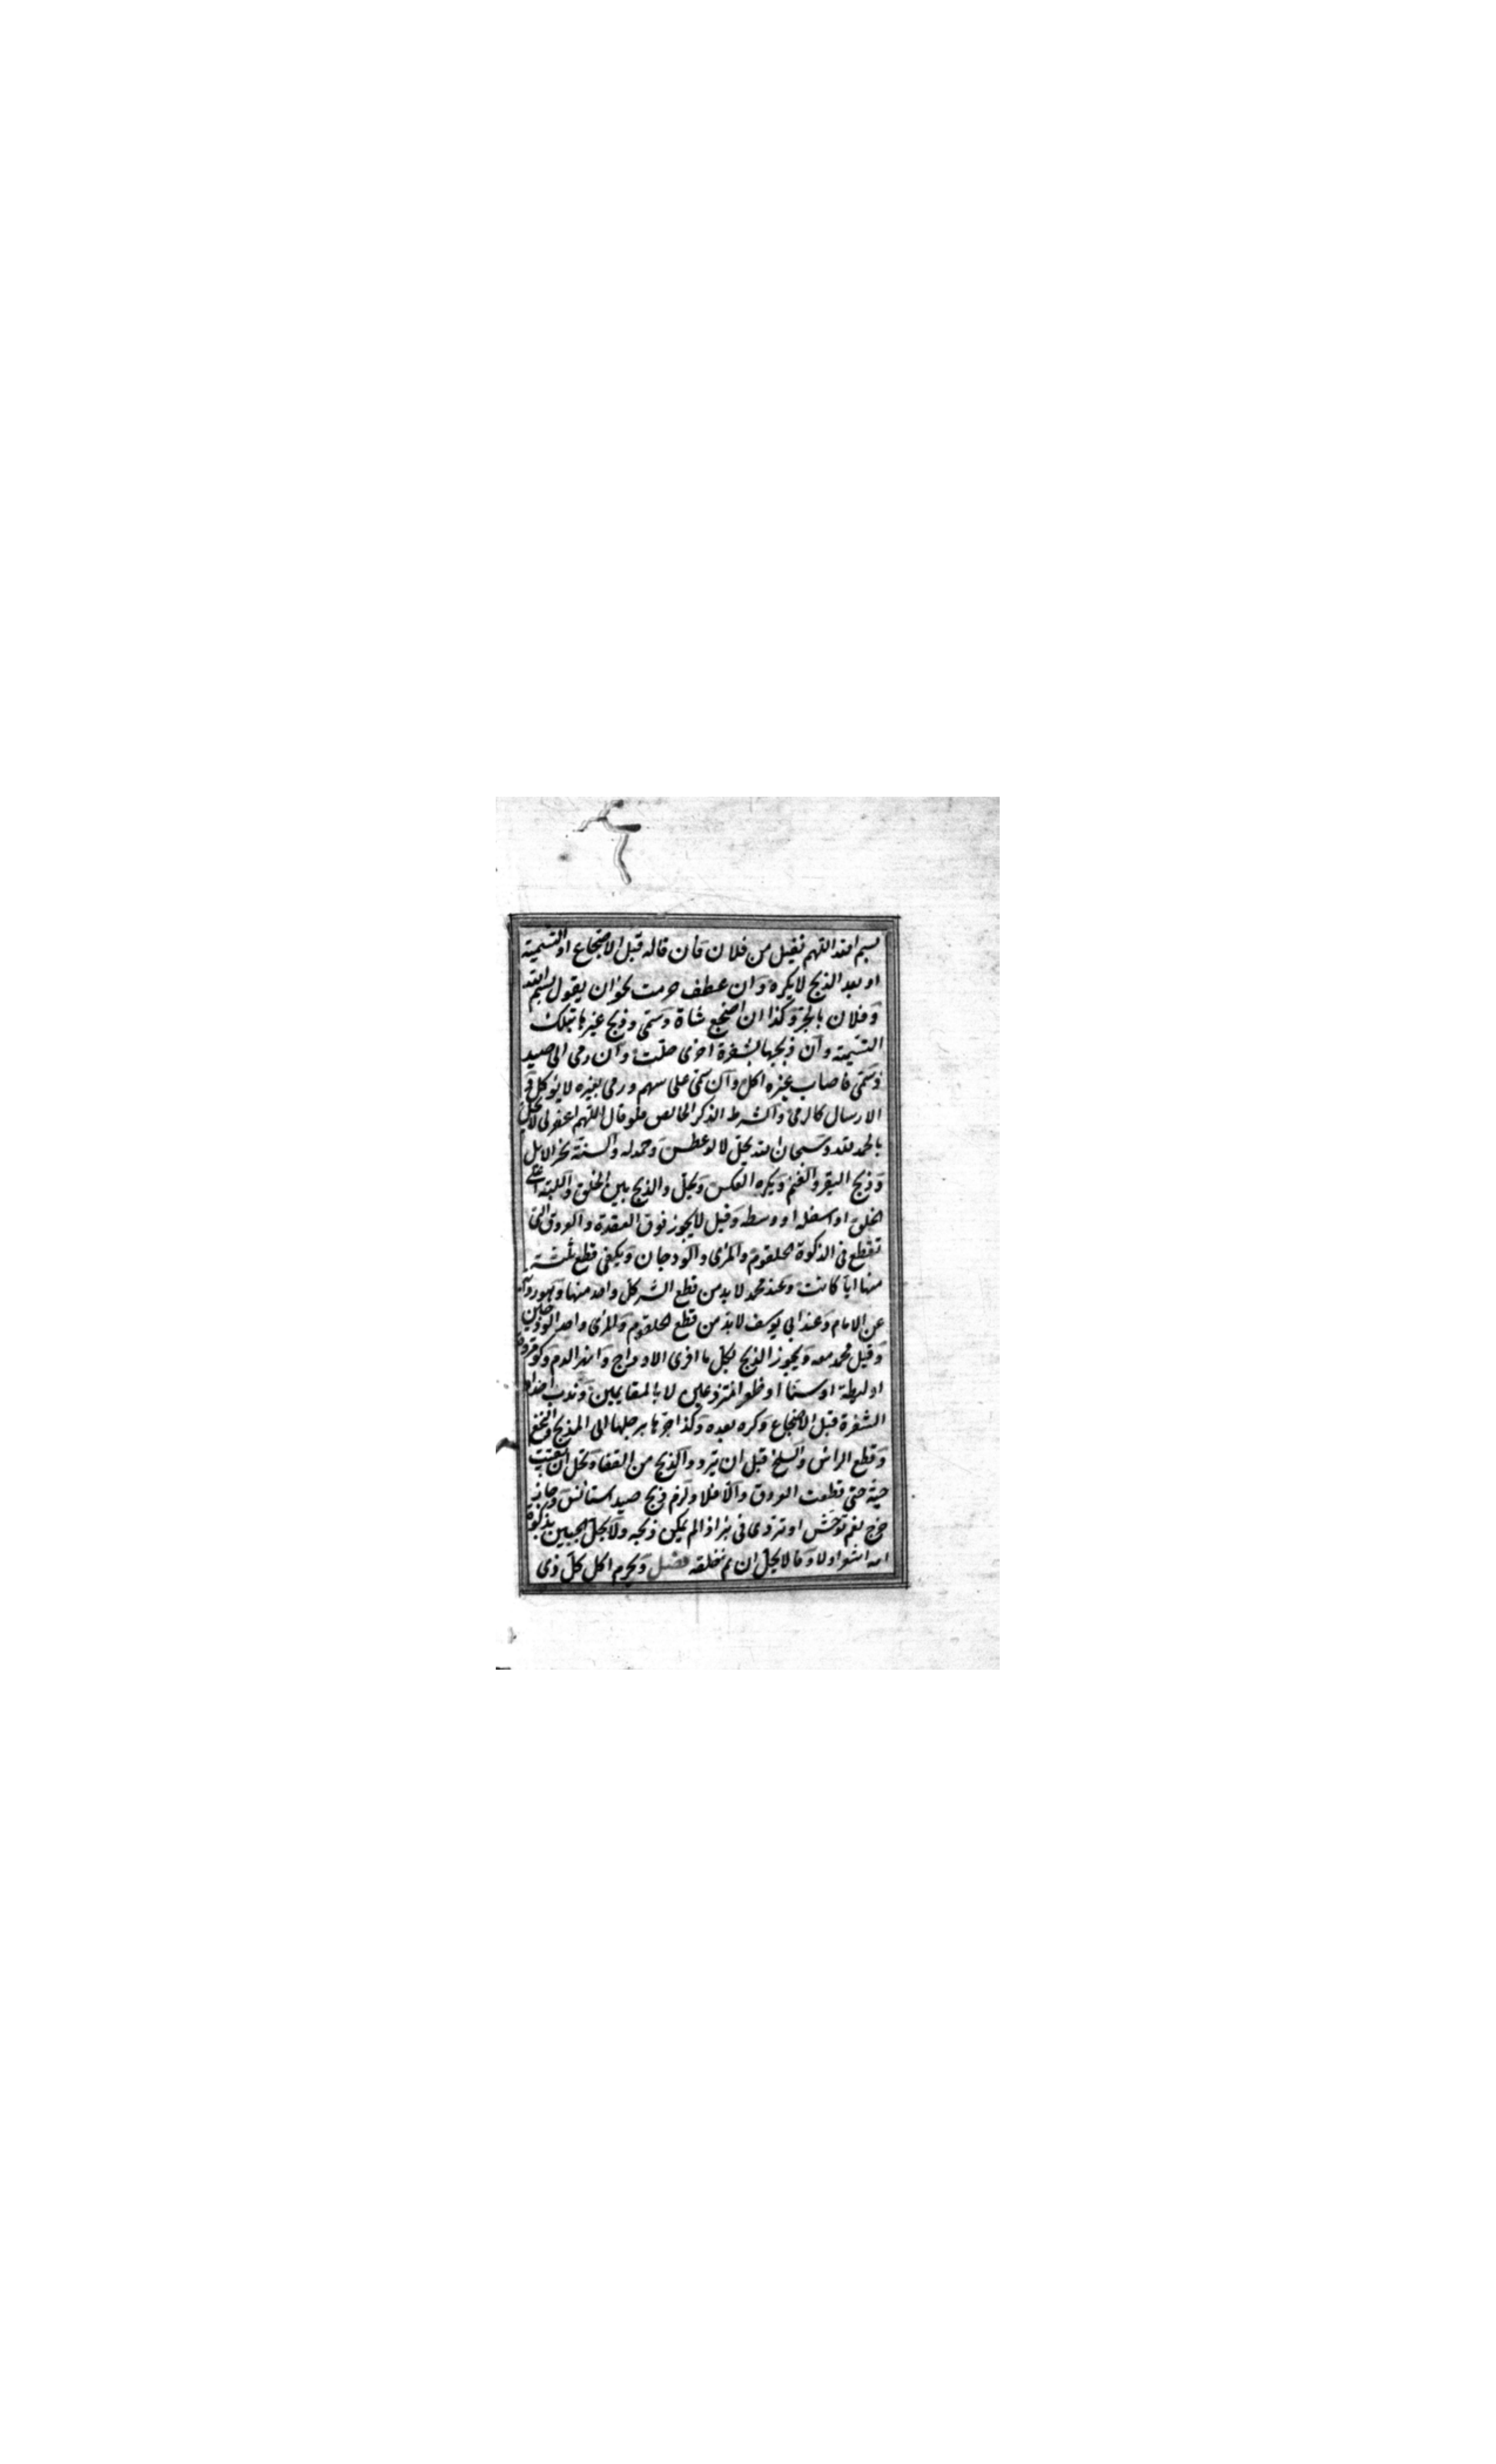 بسم الله اللهم تقبل من فلان فان قاله قبل الاضجاع او التسمية
او بعد الذبح لا يكره وان عطف حرمت نحو ان يقول بسم الله
وفلان بالجر وكذا ان اضجع شاة وسمى وذبح غيرها بتلك
التسمية وان ذبحها بشفرة اخرى حلت وان رمى الى صيد
وسمى فاصاب غيره اكل وان سمى على سهم ورمى بغيره لا يؤكل و
الارسال كالرمى والشرط الذكر الخالص فلو قال اللهم اغفر لى لا يحل
بالحمد لله وسبحان الله يحل لا لو عطس وحمد له والسنة نحر الابل
وذبح البقر والغنم ويكره العكس ويحل والذبح بين الحلق واللبة اعلى
الحلق او اسفله او وسطه وقيل لا يجوز فوق العقدة والعروق التى
تقطع فى الذكوة الحلقوم والمرئ والودجان ويكفى قطع ثلثة
منها ايا كانت وعند محمد لا بد من قطع اكثر كل واحد منها وهو رواية
عن الامام وعند ابى يوسف لا بد من قطع الحلقوم والمرئ واحد الودجين
وقيل محمد معه ويجوز الذبح بكل ما افرى الاوداج وانهر الدم ولو مروة
او ليطة او سنا او ظفرا منزوعين لا بالقائمين وندب احداد
الشفرة قبل الاضجاع وكره بعده وكذا جرها برجلها الى المذبح والنخع
وقطع الراس والسلخ قبل ان تبرد والذبح من القفا وتحل ان بقيت
حية حتى قطعت العروق والا فلا ولزم ذبح صيد استانس وجاز
جرح نعم توحش او تردى فى بئر اذا لم يمكن ذبحه ولا يحل الجنين بذكوة
امه اشعر اولا وقالا يحل ان تم خلقه فصل ويحرم اكل كل ذى